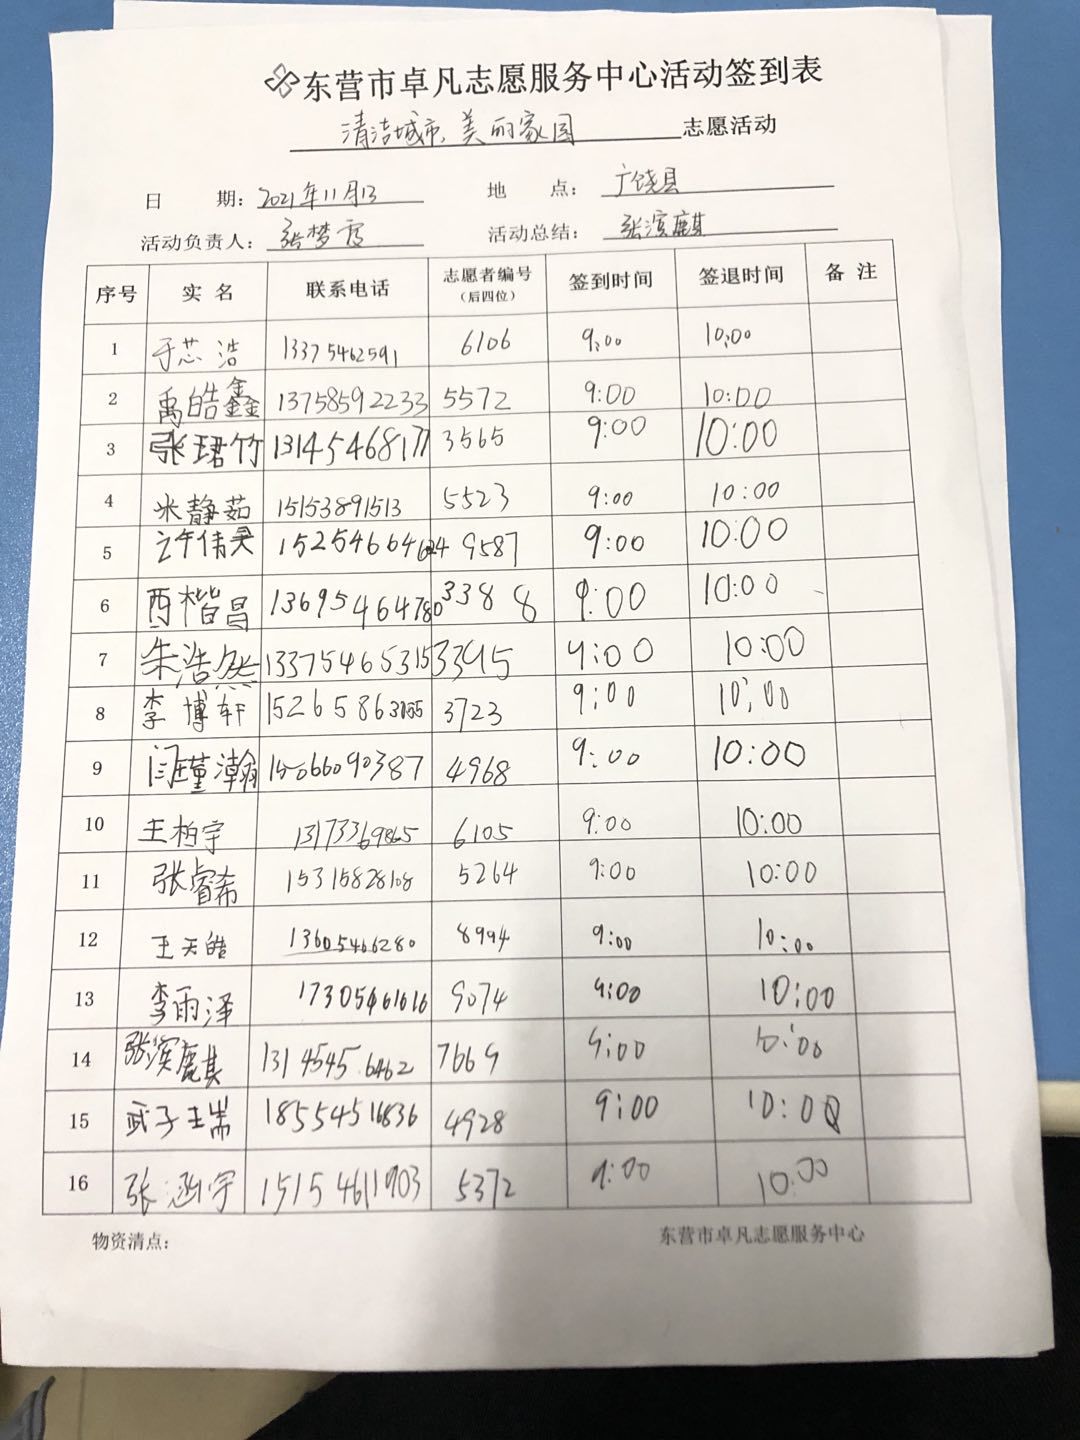 东营市卓凡志愿服务中心活动签到表
清洁城市,美丽家园 志愿活动
日 期: 2021年11月13 地 点: 广饶县
活动负责人: 张梦雪 活动总结: 张滨麒
序号 实 名 联系电话 志愿者编号(后四位) 签到时间 签退时间 备 注
1 于芯浩 13375462591 6106 9:00 10:00
2 禹皓鑫 13758592233 5572 9:00 10:00
3 张珺竹 13145468177 3565 9:00 10:00
4 米静茹 15153891513 5523 9:00 10:00
5 许倩昊 9587 9:00 10:00
6 西楷昌 13695464780 3388 9:00 10:00
7 朱浩然 13375465315 3395 9:00 10:00
8 李博轩 15265863155 3723 9:00 10:00
9 闫瑾瀚 15066090387 4968 9:00 10:00
10 王柏宇 13173369865 6105 9:00 10:00
11 张睿希 15315828108 5264 9:00 10:00
12 王天皓 13605466280 8994 9:00 10:00
13 李雨泽 17305461616 9074 9:00 10:00
14 张滨麒 13145456462 7669 9:00 10:00
15 武子 18554516836 4928 9:00 10:00
16 张涵宇 15154611903 5372 9:00 10:00
物资清点: 东营市卓凡志愿服务中心